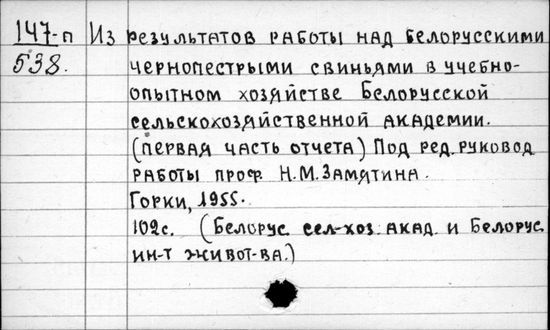 147-п Из результатов работы над белорусскими
538. чернопестрыми свиньями в учебно-
опытном хозяйстве Белорусской
сельскохозяйственной академии.
(первая часть отчета) Под ред. руковод.
работы проф. Н.М. Замятина.
Горки, 1955.
102с. (Белорус. сел-хоз. акад. и Белорус.
ин-т живот-ва.)